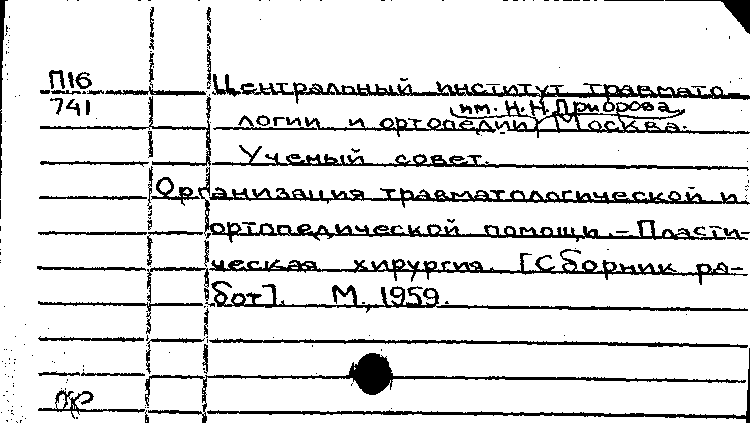 П16
741
Центральный институт травмато-
им. Н.Н.Приорова
логии и ортопедии, Москва.
Ученый совет.
Организация травматологической и
ортопедической помощи. – Пласти-
ческая хирургия. [Сборник ра-
бот]. М., 1959.